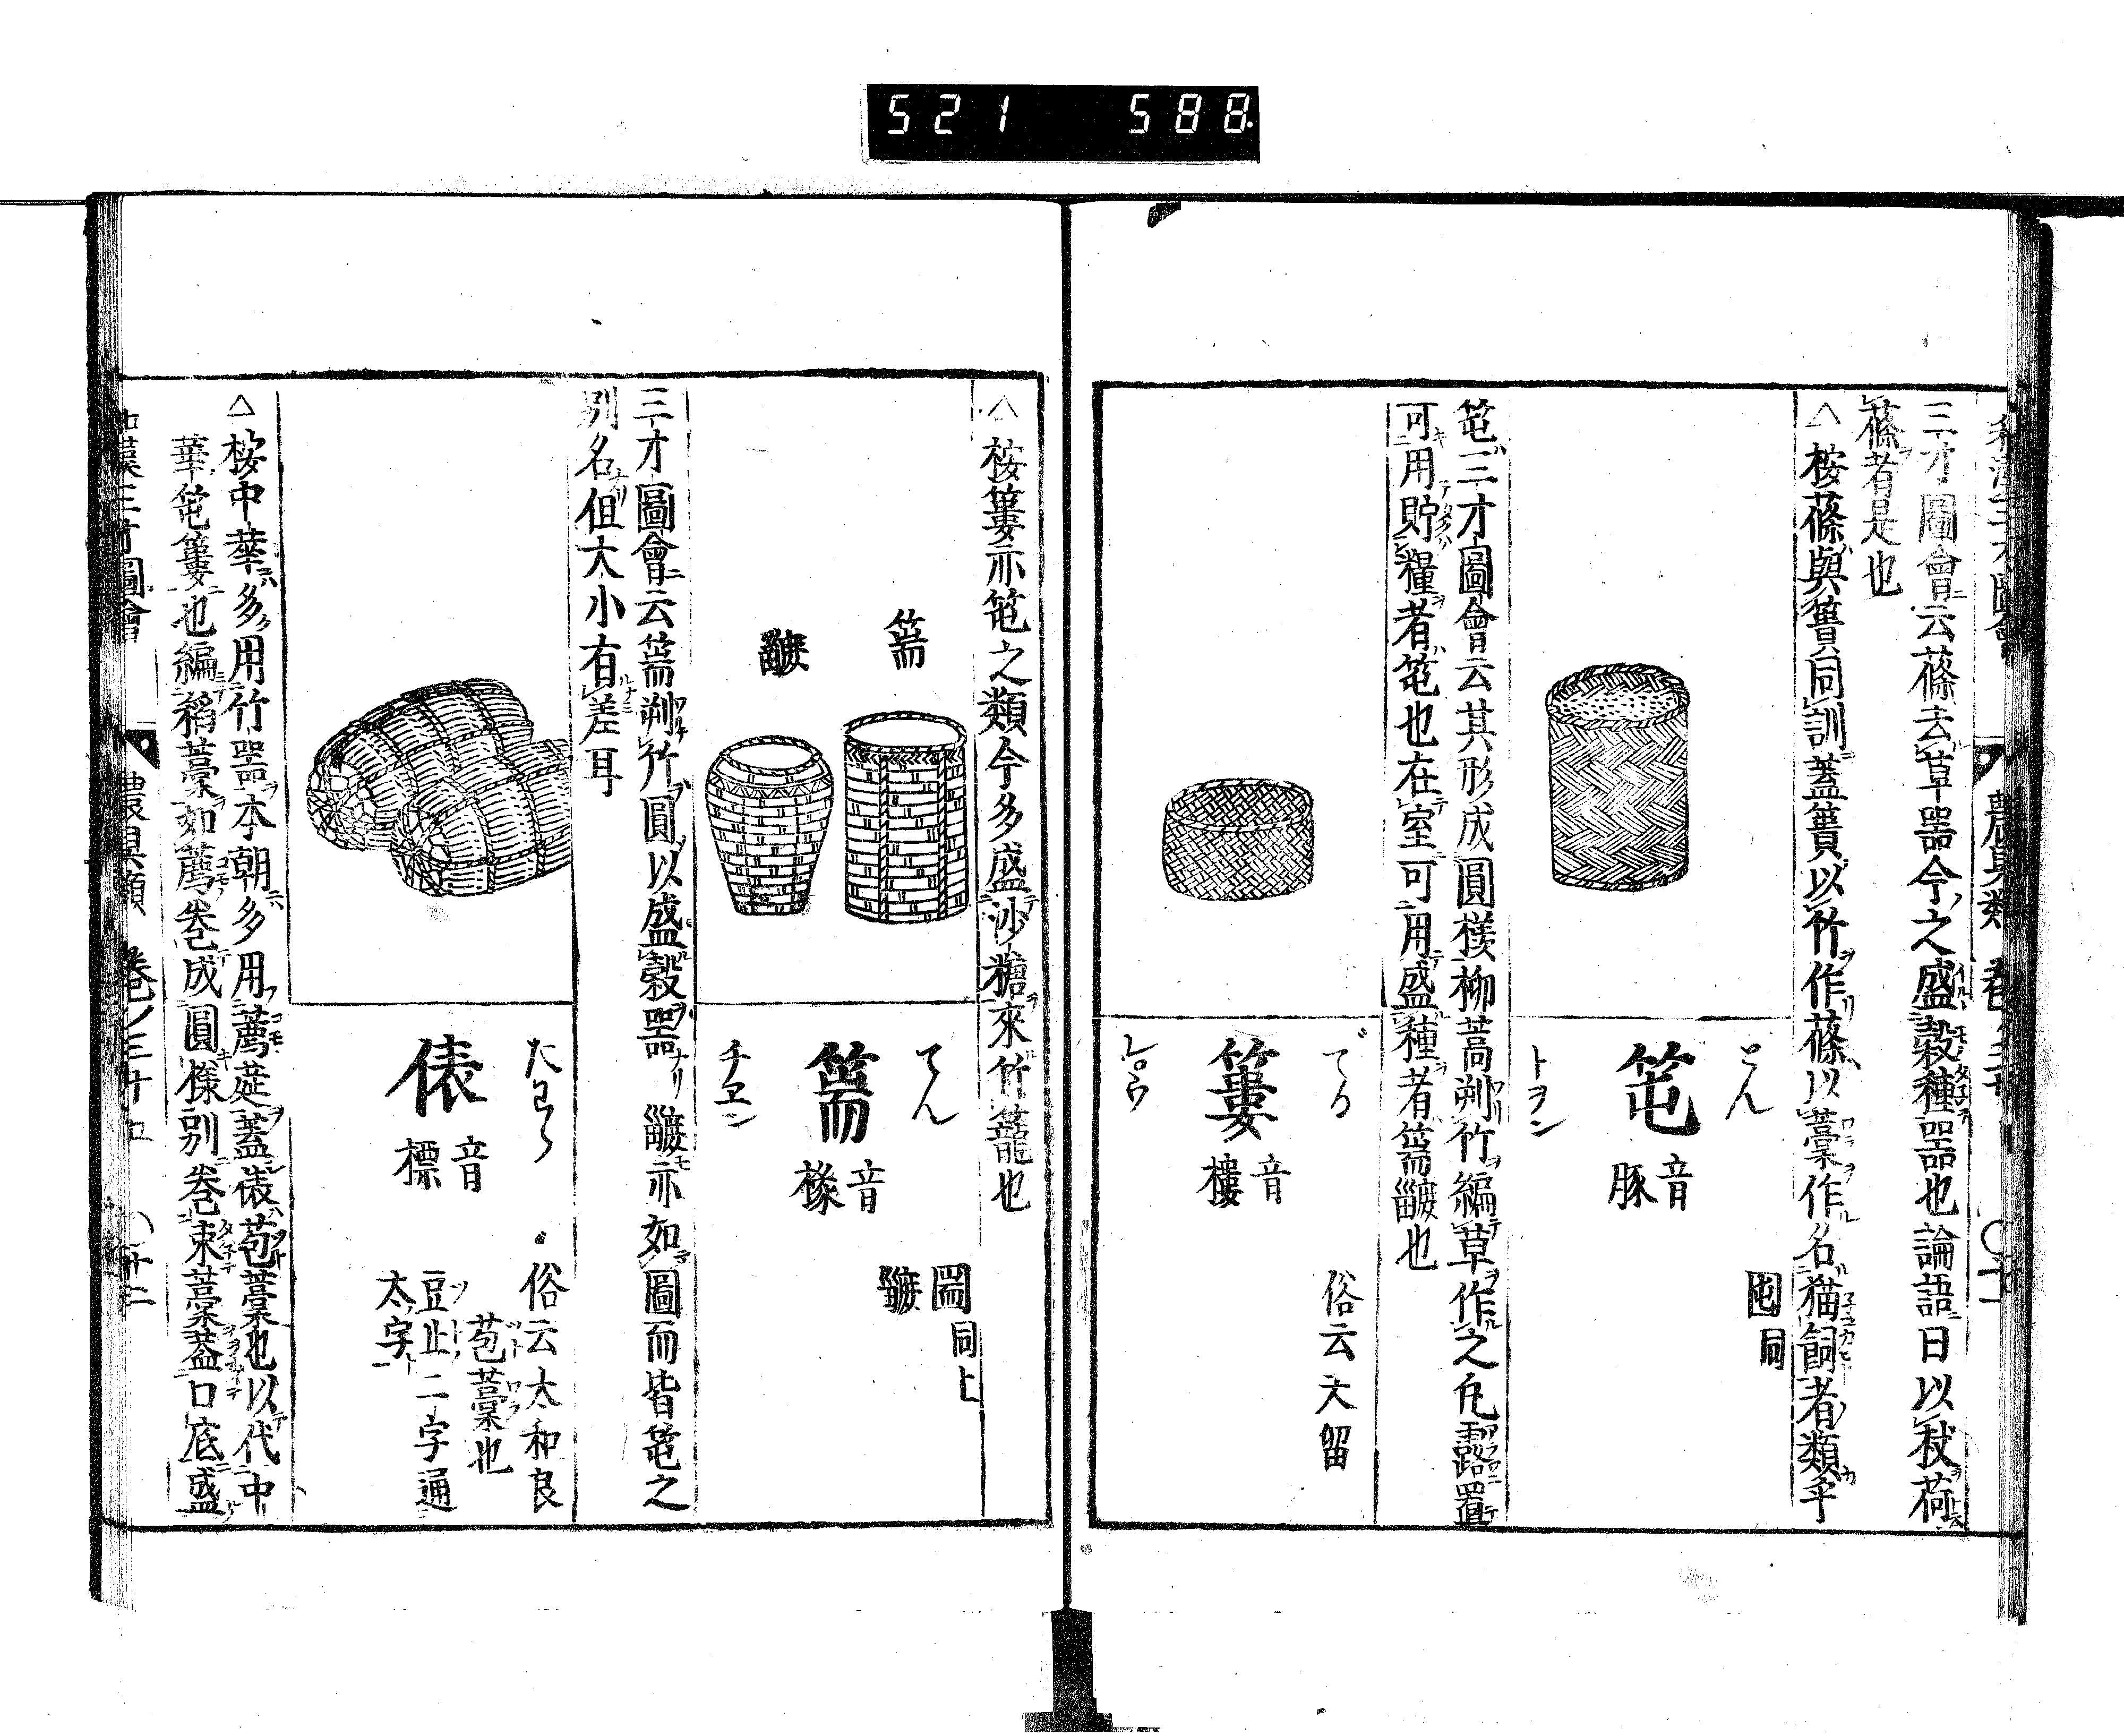 521 588
農具類
三才圖會云蓧去草器今之盛穀種器也論語曰以杖荷
蓧者是也
△按蓧與簣同訓蓋簣以竹作蓧以藁作名猫飼者類乎
とん
笹
音豚
トヲン
囤同
笹三才圖會云其形成圓樣柳蒿剡竹編草作之凡露置
可用貯糧者笹也在室可用盛種者篅𥂖也
でる
簍
音樓
レ
俗云大留
△按簍亦笹之類今多盛沙糖來竹籠也
篅
てん
篅
音椽
チヱン
圌
同上
三才圖會云篅剡竹圓以盛穀器
亦如圖而皆笹之
別名但大小有差耳
たわら
俵
音標
俗云太和良
苞藁也
豆止二字通
太字
△按中華多用竹器本朝多用薦莚蓋俵苞藁也以代中
華笹簍也編稻藁如薦卷成圓樣別卷束藁葢口底盛
和漢三才圖會
農具類
卷ノ三十五
〇十二